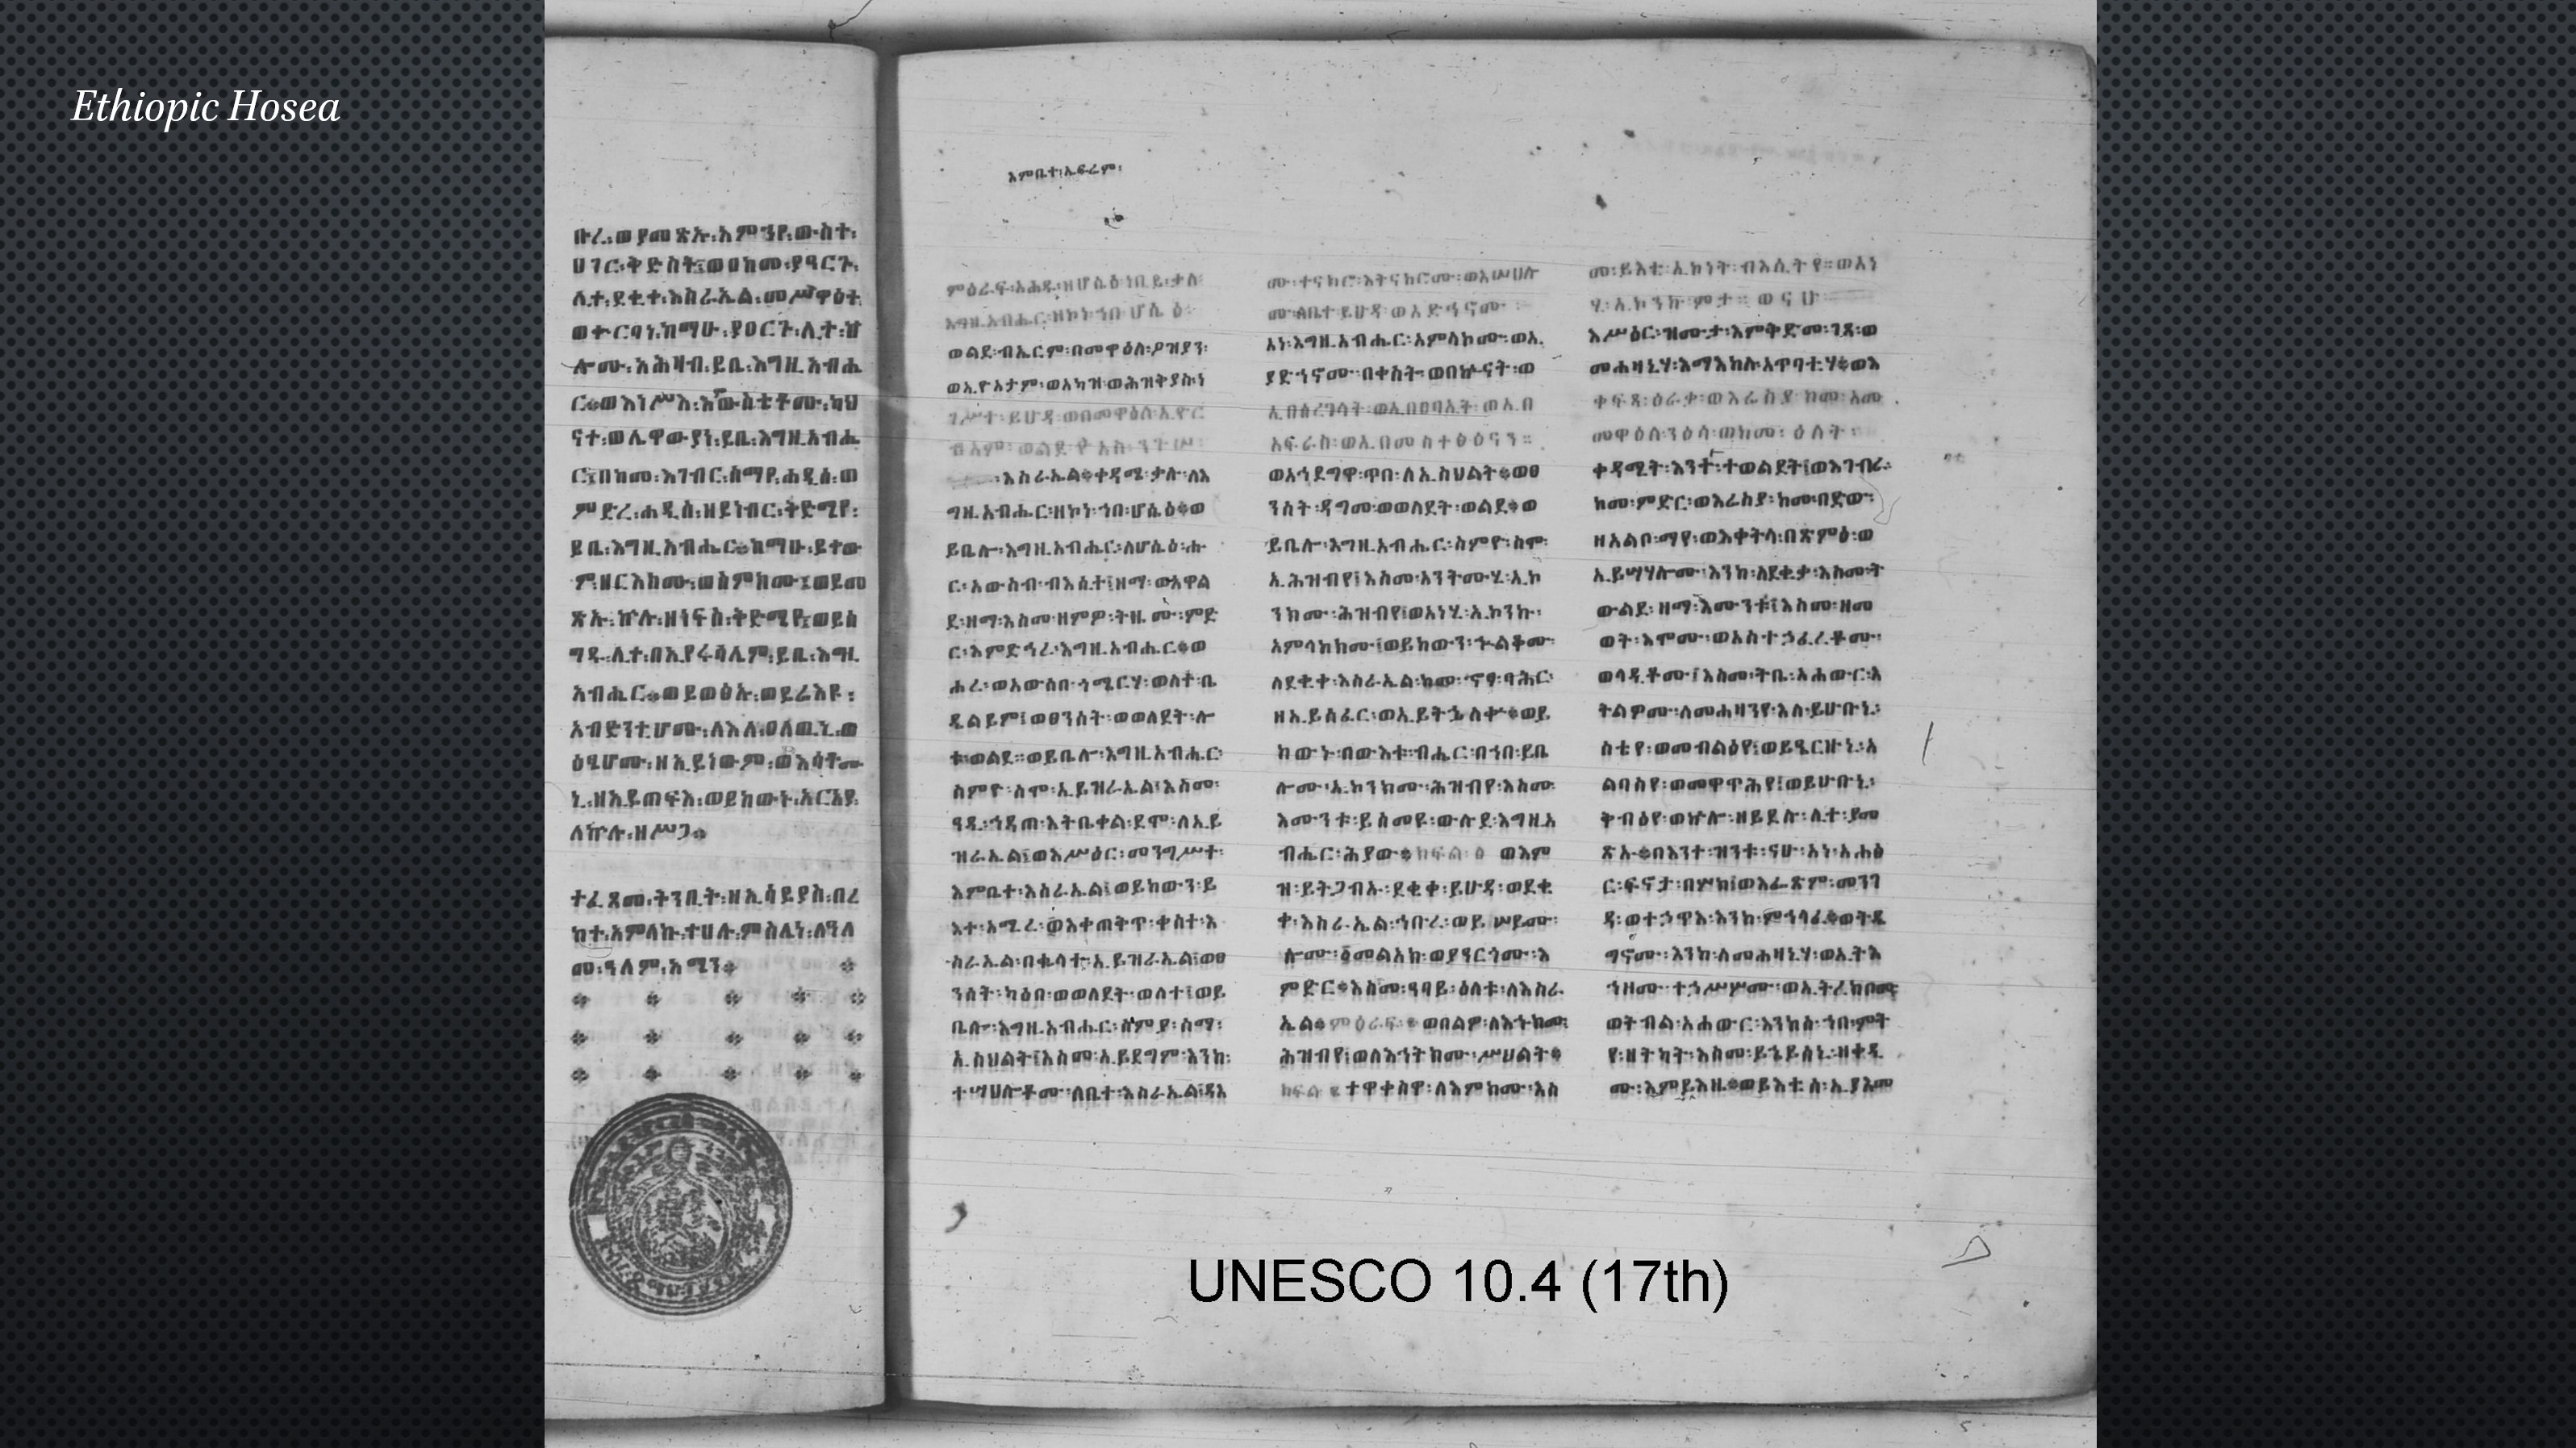 Ethiopic Hosea
እምቤተ፡ኤፍሬም፡
ሀገር፡ቅድስት፤ወበከመ፡ያዓርጉ፡
ሊተ፡ደቂቀ፡እስራኤል፡መሥዋዕተ
ሎሙ፡አሕዛብ፡ይቤ፡እግዚአብሔ
ናተ፡ወሌዋውያነ፡ይቤ፡እግዚአብሔ
ር፤በከመ፡እገብር፡ሰማየ፡ሐዲሰ፡ወ
ምድረ፡ሐዲሰ፡ዘይነብር፡ቅድሜየ፡
ይቤ፡እግዚአብሔር፡ከማሁ፡ይቀው
ም፡ዘርእክሙ፡ወስምክሙ፤ወይመ
ጽኡ፡ኵሉ፡ዘነፍስ፡ቅድሜየ፤ወይስ
ግዱ፡ሊተ፡በኢየሩሳሌም፡ይቤ፡እግዚ
አብሔር።ወይወፅኡ፡ወይሬእዩ፡
አብድንቲሆሙ፡ለእለ፡ዐለዉኒ፡ወ
ዕፄሆሙ፡ዘኢይነውም፡ወእሳቶሙ
ኒ፡ዘኢይጠፍእ፡ወይከውኑ፡አርአያ
ለኵሉ፡ዘሥጋ።
ተፈጸመ፡ትንቢት፡ዘኢሳይያስ፡በረ
ከተ፡አምላኩ፡ተሀሉ፡ምስሌነ፡ለዓለ
መ፡ዓለም፡አሜን።
ምዕራፍ፡አሐዱ፡ዘሆሴዕ፡ነቢይ፡ቃለ
እግዚአብሔር፡ዘኮነ፡ኀበ፡ሆሴዕ፡
ወልደ፡ብኤርም፡በመዋዕለ፡ዖዝያን፡
ወኢዮአታም፡ወአካዝ፡ወሕዝቅያስ፡ነ
ገሥተ፡ይሁዳ፡ወበመዋዕለ፡ኢዮር
ብዓም፡ወልደ፡ዮአስ፡ንጉሠ፡
እስራኤል።ቀዳሜ፡ቃሉ፡ለእ
ግዚአብሔር፡ዘኮነ፡ኀበ፡ሆሴዕ።ወ
ይቤሎ፡እግዚአብሔር፡ለሆሴዕ፡ሑ
ር፡አውስብ፡ብእሲተ፤ዘማ፡ወአዋል
ደ፡ዘማ፡እስመ፡ዘምዎ፡ትዜሙ፡ምድ
ር፡እምድኅረ፡እግዚአብሔር።ወ
ሐረ፡ወአውሰበ፡ጎሜርሃ፡ወለተ፡ቤ
ዴልይም፤ወፀንሰት፡ወወለደት፡ሎ
ቱ፡ወልደ።ወይቤሎ፡እግዚአብሔር፡
ስምዮ፡ስሞ፡ኢይዝራኤል፤እስመ፡
ዓዲ፡ኅዳጠ፡እትቤቀል፡ደሞ፡ለኢይ
ዝራኤል፤ወእሥዕር፡መንግሥተ፡
እምቤተ፡እስራኤል፤ወይከውን፡ይ
እተ፡አሚረ፡ወእቀጠቅጥ፡ቀስተ፡እ
ስራኤል፡በቁላተ፡ኢይዝራኤል፤ወፀ
ንሰት፡ካዕበ፡ወወለደት፡ወለተ፤ወይ
ቤሎ፡እግዚአብሔር፡ስምያ፡ስማ፡
ኢስህልት፤እስመ፡ኢይደግም፡እንከ፡
ተሣህሎቶሙ፡ለቤተ፡እስራኤል፤ዳእ
ሙ፡ተናክሮ፡እትናከሮሙ፡ወእሣሀሎ
ሙ፡ለቤተ፡ይሁዳ፡ወአድኅኖሙ፡
አነ፡እግዚአብሔር፡አምላኮሙ፡ወኢ
ያድኅኖሙ፡በቀስት፡ወበኵናት፡ወ
ኢበሰረገላት፡ወኢበፀባኢት፡ወኢበ
አፍራስ፡ወኢበመስተፅዕናን።
ወአኅደግዋ፡ጥበ፡ለኢስህልት።ወፀ
ንሰት፡ዳግመ፡ወወለደት፡ወልደ።ወ
ይቤሎ፡እግዚአብሔር፡ስምዮ፡ስሞ፡
ኢሕዝብየ፤እስመ፡አንትሙሂ፡ኢኮ
ንክሙ፡ሕዝብየ፤ወአነሂ፡ኢኮንኩ፡
አምላክክሙ፤ወይከውን፡ኍልቆሙ፡
ለደቂቀ፡እስራኤል፡ከመ፡ኆፃ፡ባሕር፡
ዘኢይሰፈር፡ወኢይትኌለቍ።ወይ
ከውኑ፡በውእቱ፡ብሔር፡በኀበ፡ይቤ
ሎሙ፡ኢኮንክሙ፡ሕዝብየ፡እስመ፡
እሙንቱ፡ይሰመዩ፡ውሉደ፡እግዚአ
ብሔር፡ሕያው።ክፍል፡፩ ወእም
ዝ፡ይትጋብኡ፡ደቂቀ፡ይሁዳ፡ወደቂ
ቀ፡እስራኤል፡ኅቡረ፡ወይሠይሙ፡
ሎሙ፡፩መልአከ፡ወያዓርጎሙ፡እ
ምድር።እስመ፡ዓባይ፡ዕለቱ፡ለእስራ
ኤል።ምዕራፍ፡፪ወበልዎ፡ለእኁክሙ፡
ሕዝብየ፤ወለእኅትክሙ፡ሥህልት።
ክፍል፡፪ተዋቀስዋ፡ለእምክሙ፡እስ
መ፡ይእቲ፡ኢኮነት፡ብእሲትየ።ወአነ
ሂ፡ኢኮንኩ፡ምታ።ወናሁ
እሥዕር፡ዝሙታ፡እምቅድመ፡ገጻ፡ወ
መሐዛኒሃ፡እማእከለ፡አጥባቲሃ።ወእ
ቀፍጻ፡ዕራቃ፡ወእሬስያ፡ከመ፡አመ
መዋዕለ፡ንዕሳ፡ወከመ፡ዕለት፡
ቀዳሚት፡እንተ፡ተወልደት፤ወእገብራ፡
ከመ፡ምድር፡ወእሬስያ፡ከመ፡በድው፡
ዘአልቦ፡ማየ፡ወእቀትላ፡በጽምዕ፡ወ
ኢይሣሃሎሙ፡እንከ፡ለደቂቃ፡እስመ፡ት
ውልደ፡ዘማ፡እሙንቱ፤እስመ፡ዘመ
ወት፡እሞሙ፡ወአስተኃፈረቶሙ፡
ወላዲቶሙ፤እስመ፡ትቤ፡አሐውር፡እ
ትልዎሙ፡ለመሐዛንየ፡እለ፡ይሁቡኒ፡
ስቴየ፡ወመብልዕየ፤ወይዔርዙኒ፡አ
ልባስየ፡ወመዋጥሕየ፤ወይሁቡኒ፡
ቅብዕየ፡ወኵሎ፡ዘይደሉ፡ሊተ፡ያመ
ጽኡ።በእንተ፡ዝንቱ፡ናሁ፡አነ፡አሐፅ
ር፡ፍኖታ፡በሦክ፤ወእፈጽም፡መንገ
ዳ፡ወተኃጥእ፡እንከ፡ምኅላፈ።ወትዴ
ግኖሙ፡እንከ፡ለመሐዛኒሃ፡ወኢትእ
ኅዞሙ፡ተኀሥሦሙ፡ወኢትረክቦሙ፡
ወትብል፡አሐውር፡እንከሰ፡ኀበ፡ምት
የ፡ዘትካት፡እስመ፡ይኄይሰኒ፡ዘቀዲ
ሙ፡እምይእዜ።ወይእቲሰ፡ኢያእመ
UNESCO 10.4 (17th)